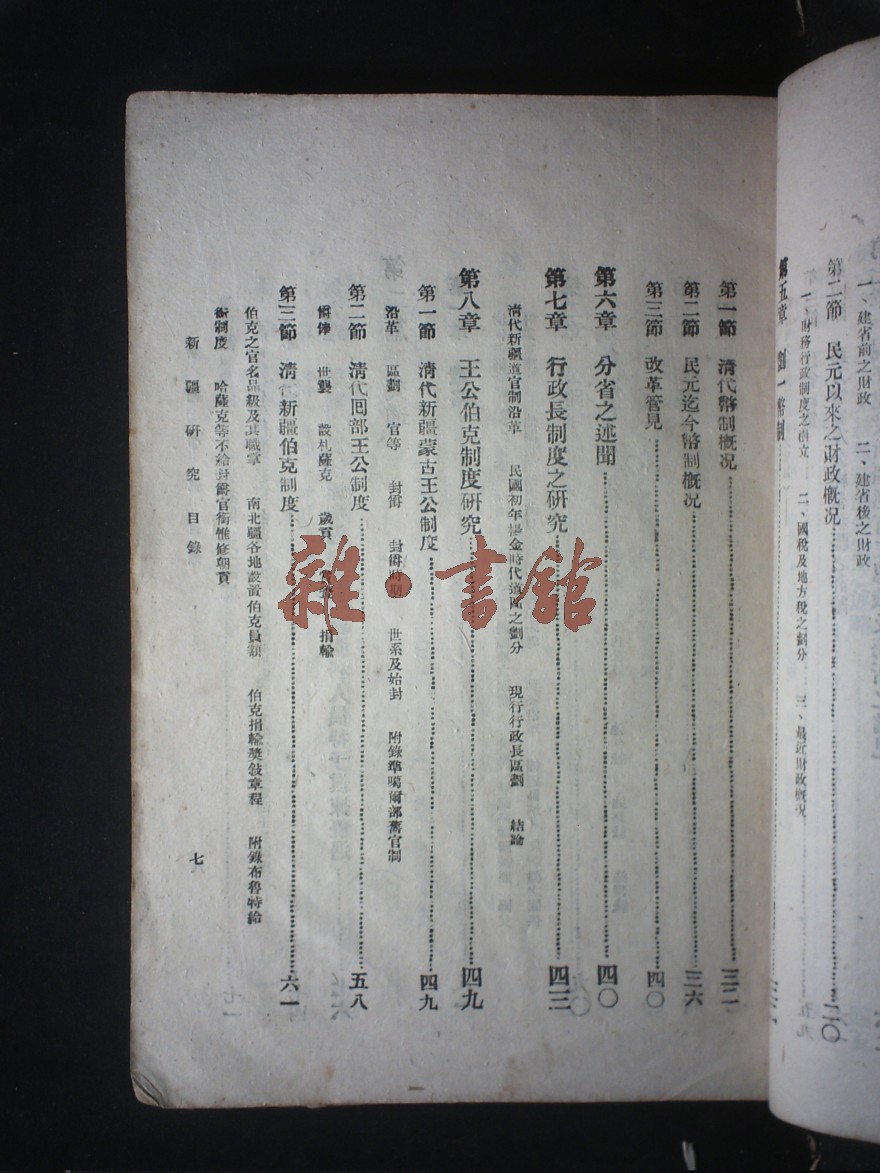 一、建省前之財政　二、建省後之財政
第二節　民元以來之財政概况……二〇
一、財務行政制度之樹立　二、國稅及地方稅之劃分　三、最近財政概况
第五章　劃一幣制
第一節　清代幣制概况……三二
第二節　民元迄今幣制概况……三六
第三節　改革管見……四〇
第六章　分省之述聞……四〇
第七章　行政長制度之研究……四三
清代新疆道官制沿革　民國初年楊金時代道區之劃分　現行行政長區劃　結論
第八章　王公伯克制度研究……四九
第一節　清代新疆蒙古王公制度……四九
沿革　區劃　官等　封爵　封爵時期　世系及始封　附錄準噶爾部舊官制
第二節　清代回部王公制度……五八
爵俸　世襲　設札薩克　歲貢　捐輸
第三節　清代新疆伯克制度……六一
伯克之官名品級及其職掌　南北疆各地設置伯克員額　伯克捐輸獎敍章程　附錄布魯特給
銜制度　哈薩克等不給封爵官銜惟修朝貢
新疆研究目錄　七
雜·書館